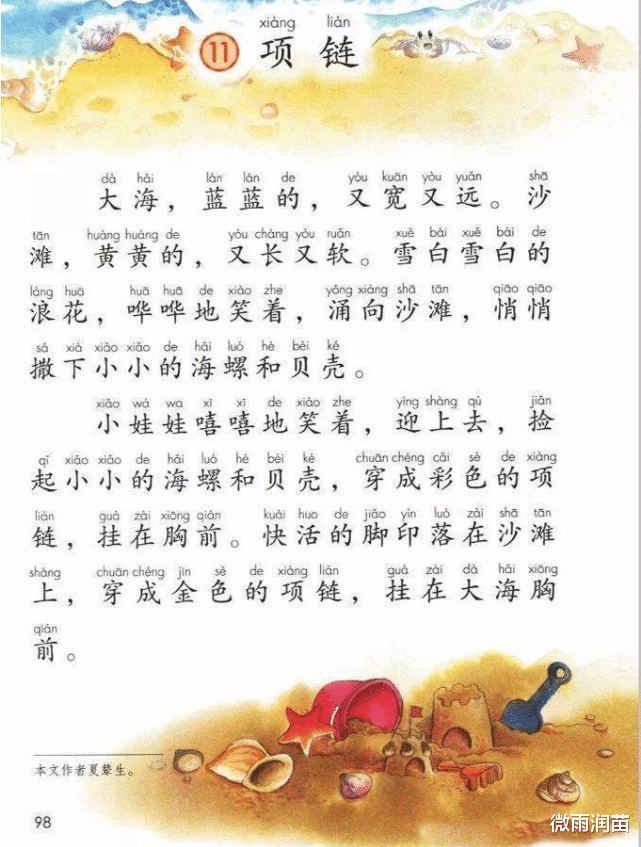 xiàng liàn
11 项链
dà hǎi lán lán de yòu kuān yòu yuǎn shā
大海，蓝蓝的，又宽又远。沙
tān huáng huáng de yòu cháng yòu ruǎn xuě bái xuě bái de
滩，黄黄的，又长又软。雪白雪白的
làng huā huā huā de xiào zhe yǒng xiàng shā tān qiāo qiāo
浪花，哗哗地笑着，涌向沙滩，悄悄
sǎ xià xiǎo xiǎo de hǎi luó hé bèi ké
撒下小小的海螺和贝壳。
xiǎo wá wa xī xī de xiào zhe yíng shàng qù jiǎn
小娃娃嘻嘻地笑着，迎上去，捡
qǐ xiǎo xiǎo de hǎi luó hé bèi ké chuān chéng cǎi sè de xiàng
起小小的海螺和贝壳，穿成彩色的项
liàn guà zài xiōng qián kuài huo de jiǎo yìn luò zài shā tān
链，挂在胸前。快活的脚印落在沙滩
shàng chuān chéng jīn sè de xiàng liàn guà zài dà hǎi xiōng
上，穿成金色的项链，挂在大海胸
qián
前。
本文作者夏辇生。
98
微雨润苗